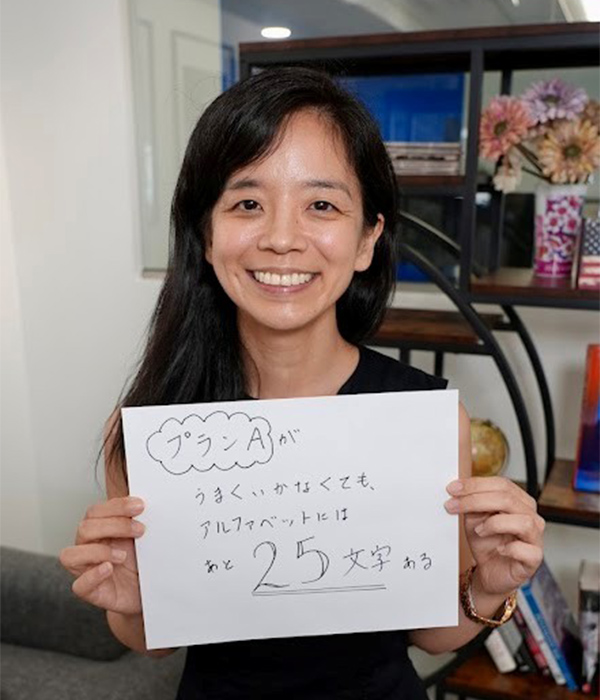 プランAが
うまくいかなくても、
アルファベットには
あと25文字ある